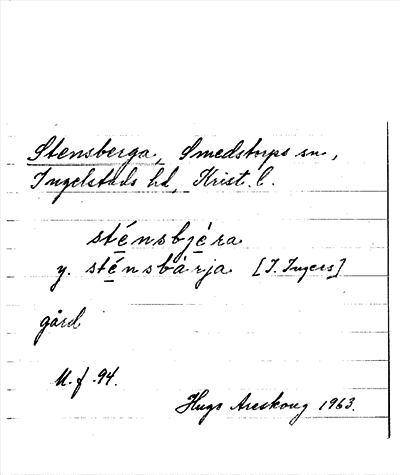 Stensberga, Smedstorps sn,
Ingelstads hd, Krist. l.
sténsbjéra
y. sténsbárja [I. Ingers]
gård
M. f. 94.
Hugo Areskoug 1963.